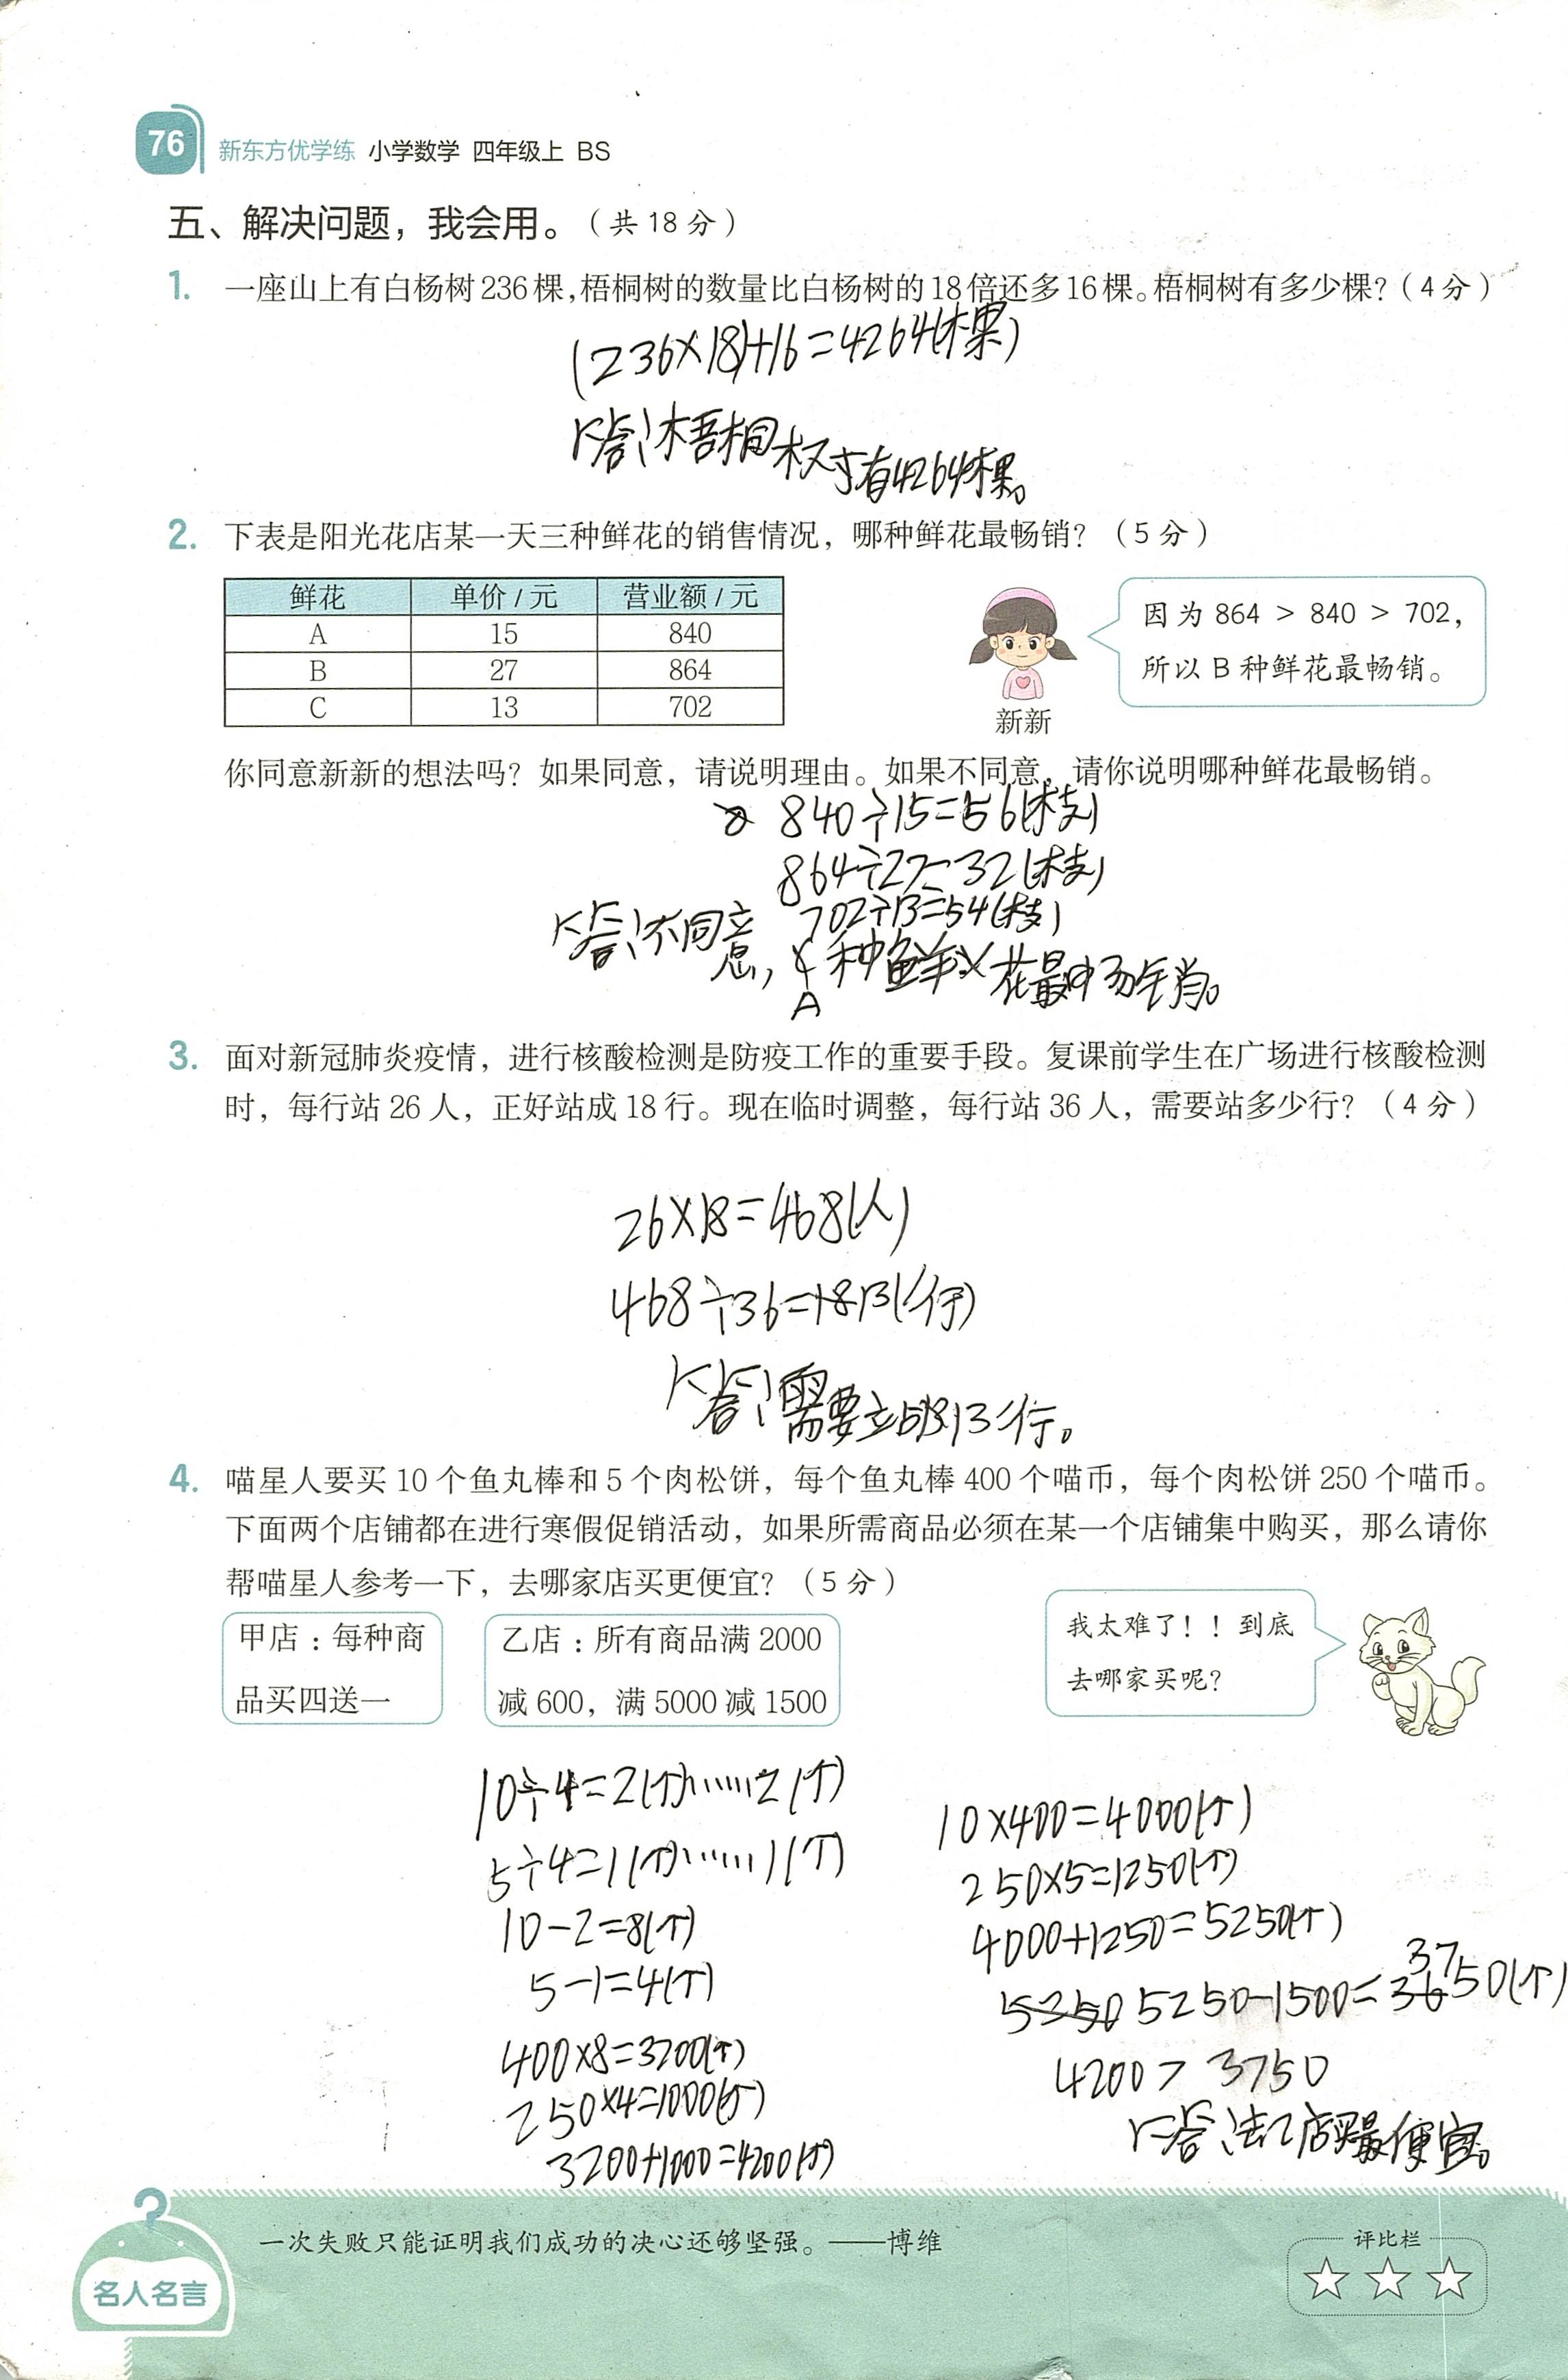 76 新东方优学练 小学数学 四年级上 BS
五、解决问题，我会用。（共18分）
1. 一座山上有白杨树236棵，梧桐树的数量比白杨树的18倍还多16棵。梧桐树有多少棵？（4分）
(236×18)+16=4264(棵)
答：梧桐树有4264棵。
2. 下表是阳光花店某一天三种鲜花的销售情况，哪种鲜花最畅销？（5分）
鲜花 单价/元 营业额/元
A 15 840
B 27 864
C 13 702
因为 864 > 840 > 702，
所以 B 种鲜花最畅销。
新新
你同意新新的想法吗？如果同意，请说明理由。如果不同意，请你说明哪种鲜花最畅销。
840÷15=56(枝)
864÷27=32(枝)
702÷13=54(枝)
答：不同意，A种鲜花最畅销。
3. 面对新冠肺炎疫情，进行核酸检测是防疫工作的重要手段。复课前学生在广场进行核酸检测
时，每行站 26 人，正好站成 18 行。现在临时调整，每行站 36 人，需要站多少行？（4 分）
26×18=468(人)
468÷36=13(行)
答：需要站13行。
4. 喵星人要买 10 个鱼丸棒和 5 个肉松饼，每个鱼丸棒 400 个喵币，每个肉松饼 250 个喵币。
下面两个店铺都在进行寒假促销活动，如果所需商品必须在某一个店铺集中购买，那么请你
帮喵星人参考一下，去哪家店买更便宜？（5 分）
甲店：每种商
品买四送一
乙店：所有商品满 2000
减 600，满 5000 减 1500
我太难了！！到底
去哪家买呢？
10÷4=2(个)……2(个)
5÷4=1(个)……1(个)
10-2=8(个)
5-1=4(个)
400×8=3200(个)
250×4=1000(个)
3200+1000=4200(个)
10×400=4000(个)
250×5=1250(个)
4000+1250=5250(个)
5250-1500=3750(个)
4200>3750
答：去乙店买最便宜。
一次失败只能证明我们成功的决心还够坚强。——博维
名人名言
评比栏